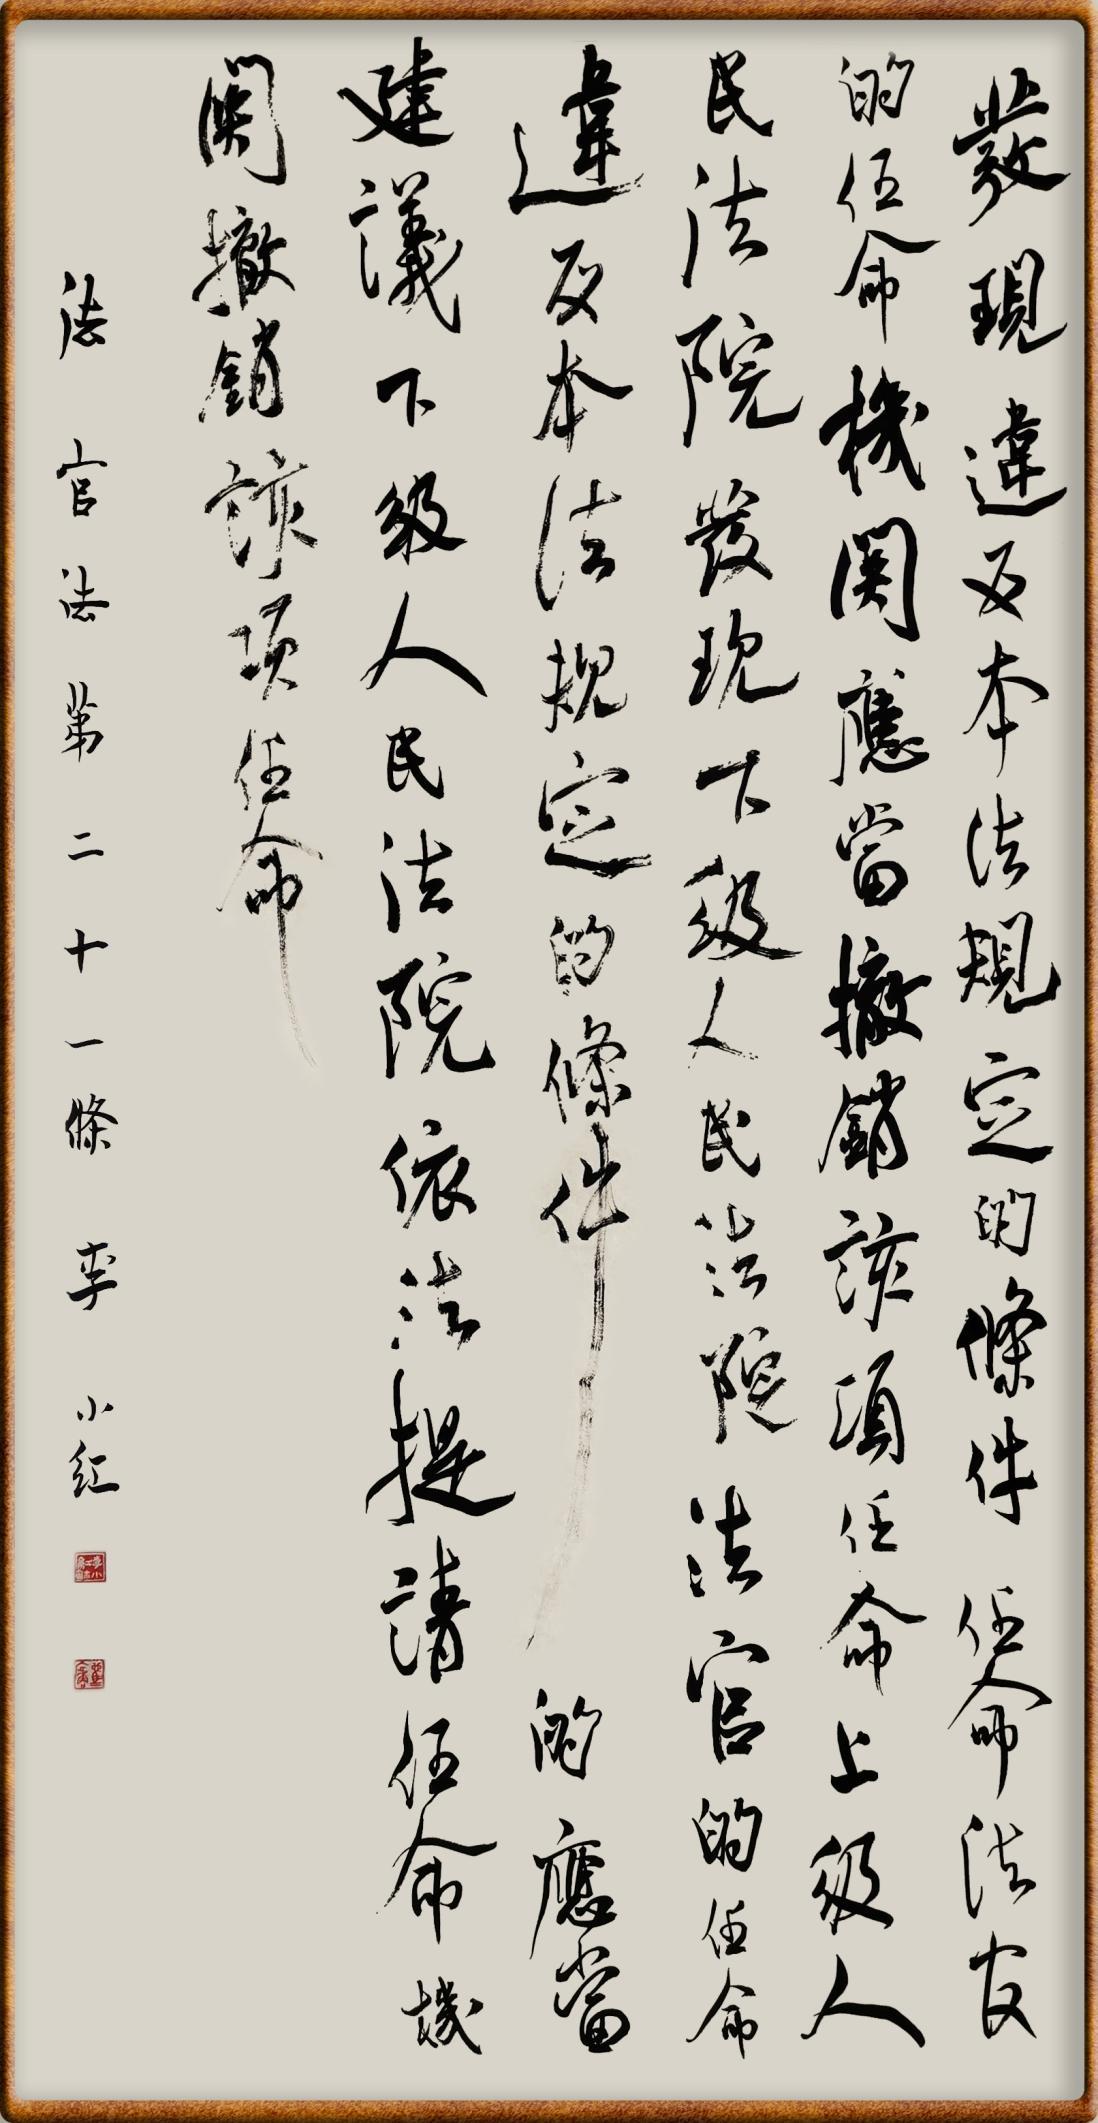 發現違反本法規定的條件任命法官
的任命機関應當撤銷該項任命上级人
民法院發現下级人民法院法官的任命
違反本法規定的條件的應當
建議下级人民法院依法提請任命機
関撤銷該項任命
法官法第二十一條 李小红